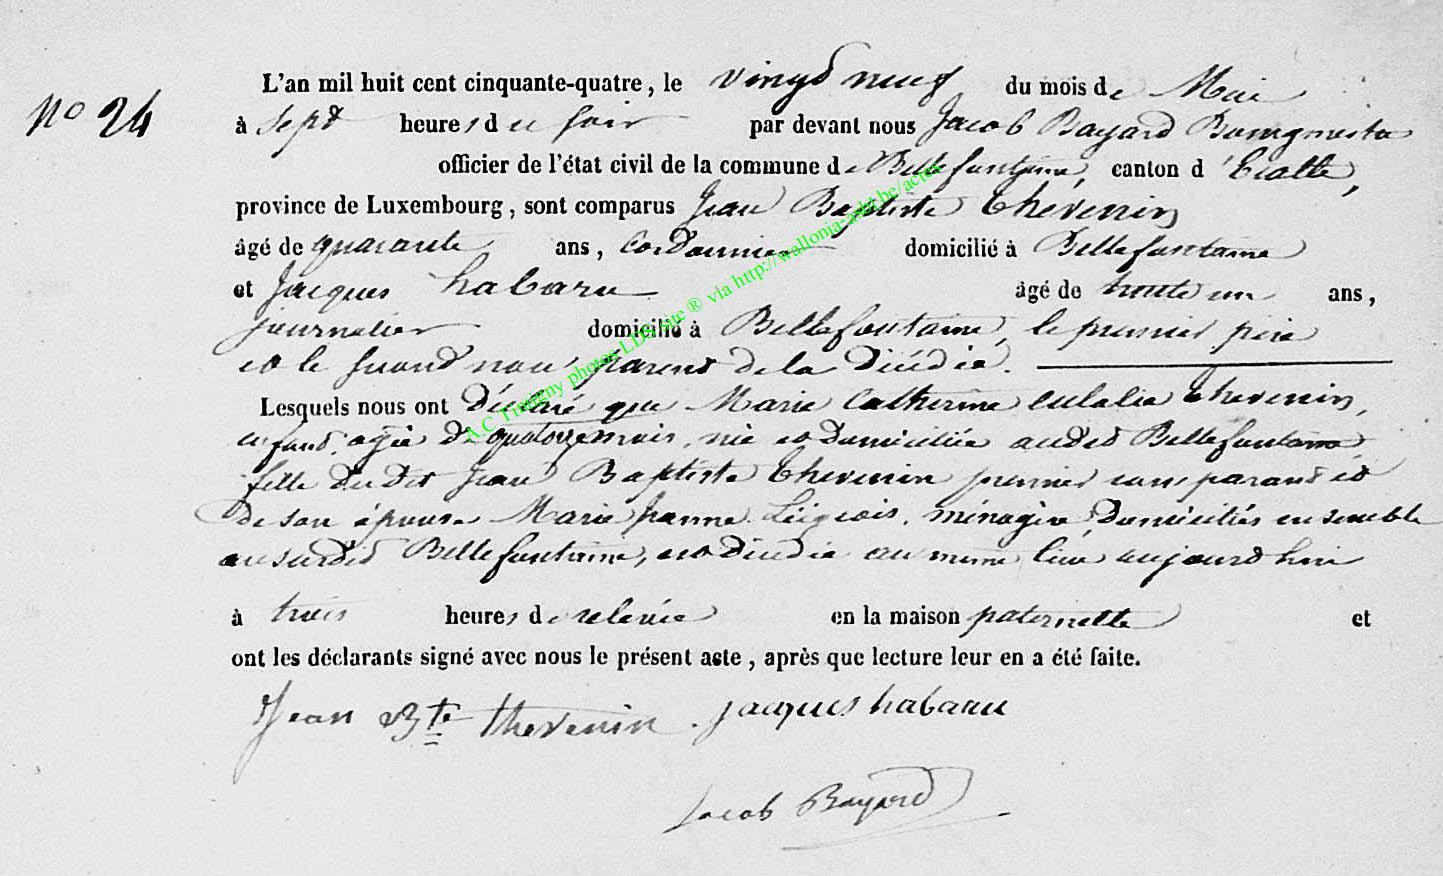 L'an mil huit cent cinquante-quatre, le vingt neuf du mois de Mai
N° 24
à Sept heures du soir par devant nous Jacob Bayard Bourgmestre
officier de l'état civil de la commune de Bellefontaine, canton d'Etalle,
province de Luxembourg, sont comparus Jean Baptiste Thevenin
âgé de quarante ans, Cordonnier domicilié à Bellefontaine
et Jacques habaru âgé de trente un ans,
journalier domicilié à Bellefontaine, le premier père
et le second non parent de la Décédée.
Lesquels nous ont Déclaré que Marie Catherine Eulalie Thevenin,
enfant, agée de quatorze mois, née et domiciliée audit Bellefontaine
fille dudit Jean Baptiste Thevenin premier comparant et
de son épouse Marie Jeanne Liégeois, ménagère, Domiciliés ensemble
au susdit Bellefontaine, est Décédée au même lieu aujourd'hui
à trois heures de relevée en la maison paternelle et
ont les déclarants signé avec nous le présent acte, après que lecture leur en a été faite.
Jean Bte thevenin. jacques habaru
Jacob Bayard
A.C. Tintigny photos LDS site ® via http://wallonia-asbl.be/actes